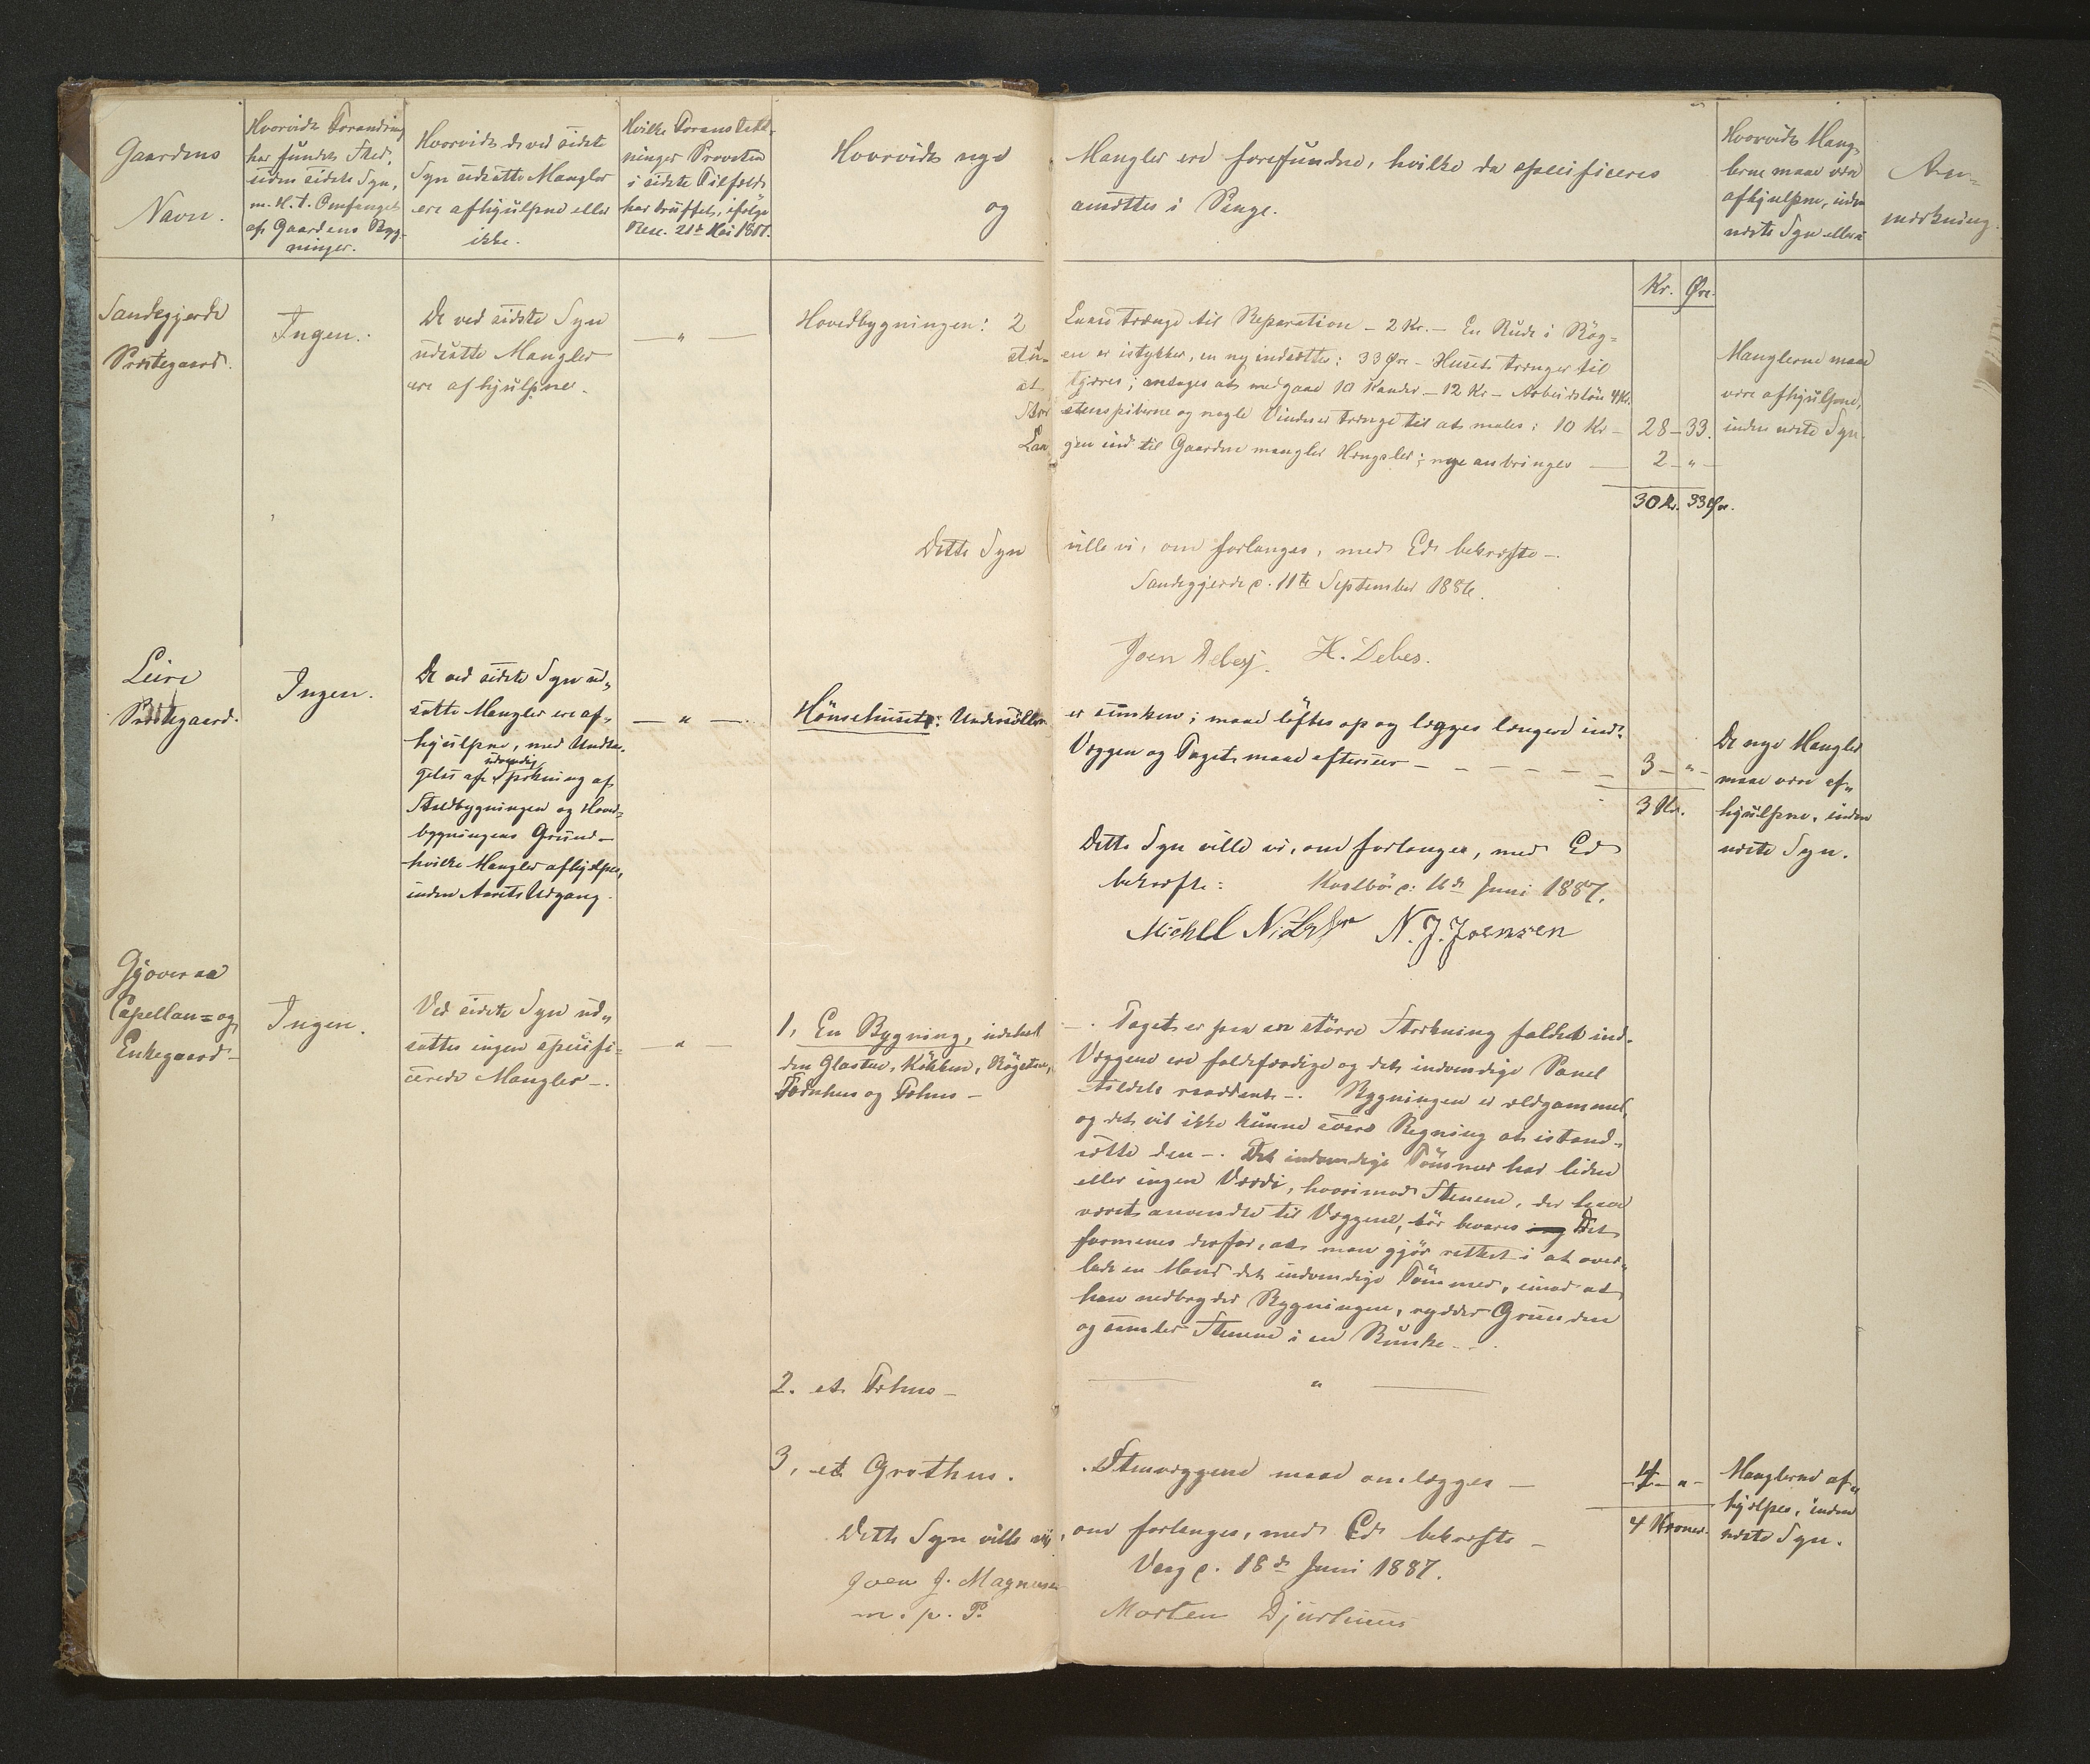 Gaardens
Navn.
Hvorvidt Forandring
har fundet Sted,
siden sidste Syn,
m. H. t. Omfanget
af Gaardens Byg-
ninger.
Hvorvidt de ved sidste
Syn udsatte Mangler
ere afhjulpne eller
ikke.
Hvilke Foranstalt-
ninger Provsten
i sidste Tilfælde
har truffet, ifølge
Resc. 21de Mai
Hvorvidt nye Mangler ere forefundne, hvilke da specificeres
og ansættes i Penge.
Hvorvidt Mang-
lerne maae være
afhjulpne, inden
næste Syn eller ei
An-
mærkning.
Kr. Øre.
Sandegjerde
Præstegaard.
Ingen.
De ved sidste Syn
udsatte Mangler
ere afhjulpne.
— " —
Hovedbygningen: 2 Laase trænge til Reparation - 2 Kr. - En Rude i Røg-
stuen er istykker, en ny indsættes: 33 Øre - Huset trænger til
at tjæres; antages at medgaae 10 Kander - 12 Kr - Arbeidsløn 4 Kr.
Skorstenspiberne og nogle Vinduer trænge til at males: 10 Kr - 28 - 33.
Laagen ind til Gaarden mangler Hængsler; nye anbringes — 2 - " -
30 Kr. 33 Øre.
Manglerne maae
være afhjulpne,
inden næste Syn.
Dette Syn ville vi, om forlanges, med Ed bekræfte -.
Sandegjerde d. 11te September 1886.
Joen Debes. H. Debes.
Leire
Præstegaard.
Ingen.
De ved sidste Syn ud-
satte Mangler ere af-
hjulpne, med Undta-
gelse af udvendig Spækning af
Staldbygningen og Hoved-
bygningens Grund -
hvilke Mangler afhjælpes,
inden Aarets Udgang.
— " —
Hønsehuset: Undersyllen er sunken; maae løftes op og lægges længere ind.
Væggen og Taget maae efterses - - - - - 3 - " -
3 Kr.
De nye Mangler
maae være af-
hjulpne, inden
næste Syn.
Dette Syn ville vi, om forlanges, med Ed
bekræfte: d. 16de Juni 1887.
N. J. Joensen
Gjoveraa
Capellan= og
Enkegaard -
Ingen.
Ved sidste Syn ud-
sattes ingen specifi-
cerede Mangler -.
— " —
1, En Bygning, indeholdende Glastue, Kökken, Rögstue,
Tørnhus og Fæhus -
- . Taget er paa en større Strækning faldet ind.
Væggene ere faldefærdige og det indvendige Panel
tildels raaddent -. Bygningen er ældgammel,
og det vil ikke kunne svare Regning at istand-
sætte den -. Det indvendige Tømmer har liden
eller ingen Værdi, hvorimod Stenene, der have
været anvendte til Væggene, bör bevares Det
formenes derfor, at man gjør rettest i at over-
lade en Mand det indvendige Tømmer, imod at
han nedbryder Bygningen, rydder Grunden
og samler Stenene i en Bunke - .
2. et Fæhus - — " —
3, et Grothus. Stenvæggene maae omlægges — 4 - " -
4 Kroner.
Manglerne af-
hjælpes, inden
næste Syn.
Dette Syn ville vi, om forlanges, med Ed bekræfte -
d. 18de Juni 1887.
Joen J. Magnussen
m. p. P.
Morten Djurhuus